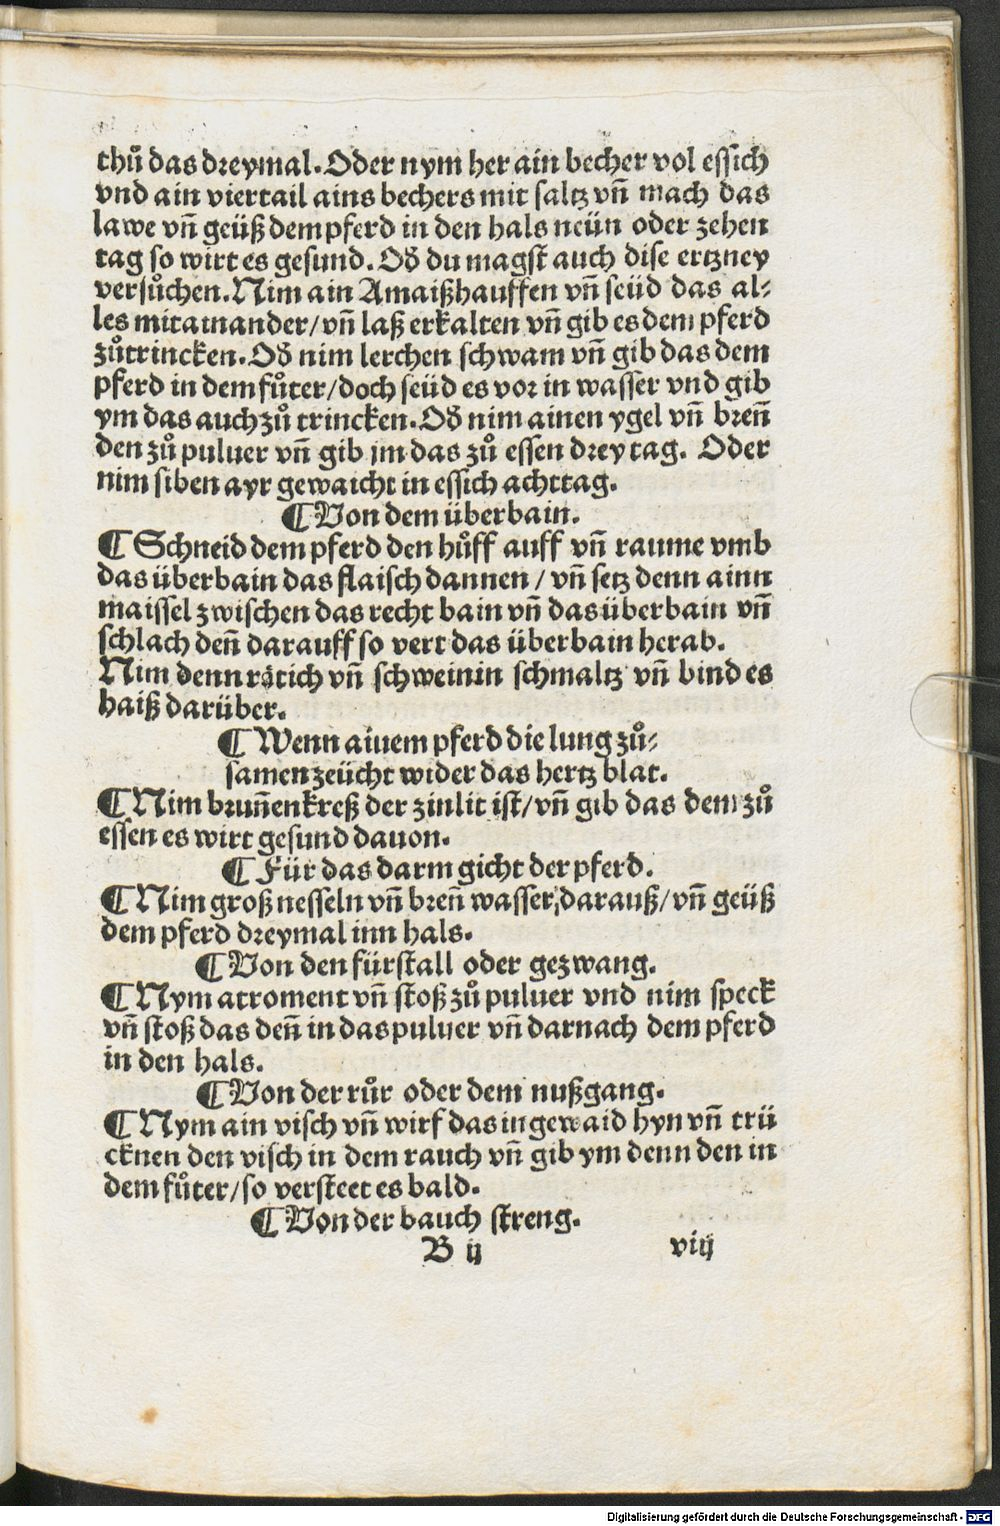 thů das dreymal. Oder nym her ain becher vol essich
vnd ain viertail ains bechers mit saltz vñ mach das
lawe vñ geüß dem pferd in den hals neün oder zehen
tag so wirt es gesund. Od̕ du magst auch dise ertzney
versůchen. Nim ain Amaißhauffen vñ seüd das al⸗
les mitainander/ vñ laß erkalten vñ gib es dem pferd
zůtrincken. Od̕ nim lerchen schwam vñ gib das dem
pferd in dem fůter/ doch seüd es vor in wasser vnd gib
ym das auch zů trincken. Od̕ nim ainen ygel vñ breñ
den zů puluer vñ gib im das zů essen drey tag. Oder
nim siben ayr gewaicht in essich acht tag.
¶ Von dem überbain.
¶ Schneid dem pferd den hůff auff vñ raume vmb
das überbain das flaisch dannen / vñ setz denn ainn
maissel zwischen das recht bain vñ das überbain vñ
schlach deñ darauff so vert das überbain herab.
Nim denn rätich vñ schweinin schmaltz vñ bind es
haiß darüber.
¶ Wenn aiuem pferd die lung zů⸗
samen zeücht wider das hertz blat.
¶ Nim bruñenkreß der zinlit ist/ vñ gib das dem zů
essen es wirt gesund dauon.
¶ Für das darm gicht der pferd.
¶ Nim groß nesseln vñ breñ wasser darauß/ vñ geüß
dem pferd dreymal inn hals.
¶ Von den fürstall oder gezwang.
¶ Nym atroment vñ stoß zů puluer vnd nim speck
vñ stoß das deñ in das puluer vñ darnach dem pferd
in den hals.
¶ Von der růr oder dem nußgang.
¶ Nym ain visch vñ wirf das ingewaid hyn vñ trü
cknen den visch in dem rauch vñ gib ym denn den in
dem fůter/ so versteet es bald.
¶ Von der bauch streng.
B ij viij
Digitalisierung gefördert durch die Deutsche Forschungsgemeinschaft - DFG